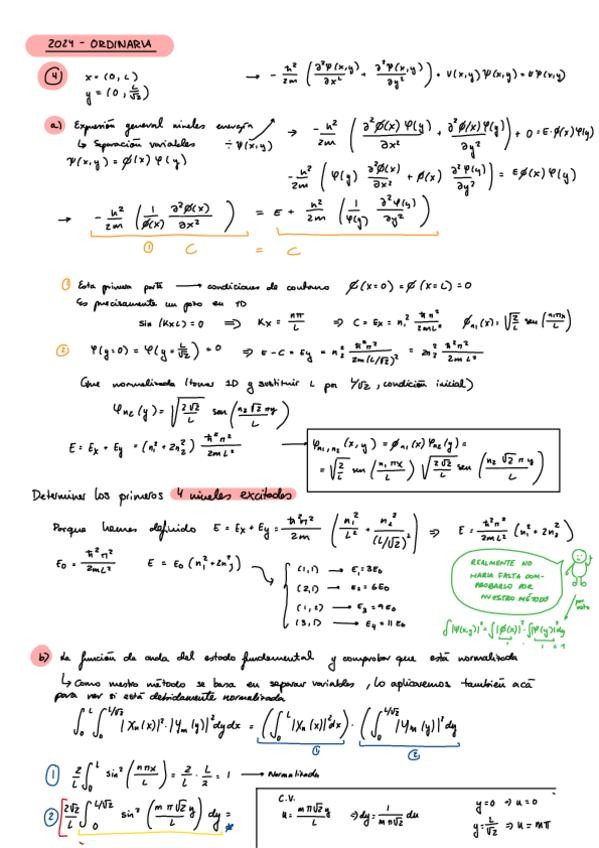 2024 - ORDINARIA
4 x = (0, L) → - ħ²/2m (∂²Ψ(x,y)/∂x² + ∂²Ψ(x,y)/∂y²) + V(x,y)Ψ(x,y) = EΨ(x,y)
y = (0, L/√2)
a) Expresión general niveles energía → - ħ²/2m (∂²ϕ(x)φ(y)/∂x² + ∂²ϕ(x)φ(y)/∂y²) + 0 = E·ϕ(x)φ(y)
↳ Separación variables ÷ Ψ(x,y)
Ψ(x,y) = ϕ(x) φ(y)
- ħ²/2m (φ(y) ∂²ϕ(x)/∂x² + ϕ(x) ∂²φ(y)/∂y²) = Eϕ(x) φ(y)
→ - ħ²/2m (1/ϕ(x) ∂²ϕ(x)/∂x²) = E + ħ²/2m (1/φ(y) ∂²φ(y)/∂y²)
① C = C
① Esta primera parte → condiciones de contorno ϕ(x=0) = ϕ(x=L) = 0
Es precisamente un pozo en 1D
sin (KxL) = 0 ⇒ Kx = nπ/L ⇒ C = Ex = n₁² ħ²π²/2mL² ϕn₁(x) = √(2/L) sen(n₁πx/L)
② φ(y=0) = φ(y=L/√2) = 0 ⇒ E - C = Ey = n₂² ħ²π²/2m(L/√2)² = 2n₂² ħ²π²/2mL²
Que normalizada (tomar 1D y sustituir L por L/√2, condición inicial)
φn₂(y) = √(2√2/L) sen(n₂√2πy/L)
E = Ex + Ey = (n₁² + 2n₂²) ħ²π²/2mL² → φn₁,n₂(x,y) = ϕn₁(x) φn₂(y) =
= √(2/L) sen(n₁πx/L) √(2√2/L) sen(n₂√2πy/L)
Determinar los primeros 4 niveles excitados
Porque hemos definido E = Ex + Ey = ħ²π²/2m (n₁²/L² + n₂²/(L/√2)²) ⇒ E = ħ²π²/2mL² (n₁² + 2n₂²)
E₀ = ħ²π²/2mL² E = E₀(n₁² + 2n₂²)
(1,1) → E₁ = 3E₀
(2,1) → E₂ = 6E₀
(1,2) → E₃ = 9E₀
(3,1) → E₄ = 11E₀
REALMENTE NO
HARÍA FALTA COM-
PROBARLO POR
NUESTRO MÉTODO
∫|Ψ(x,y)|² = ∫|ϕ(x)|²·∫|Ψ(y)|²dy
b) La función de onda del estado fundamental y comprobar que está normalizada
↳ Como nuestro método se basa en separar variables, lo aplicaremos también acá
para ver si está debidamente normalizada
∫₀ᴸ ∫₀^(L/√2) |Xn(x)|²·|Ym(y)|² dy dx = (∫₀ᴸ |Xn(x)|² dx) · (∫₀^(L/√2) |Ym(y)|² dy)
① ②
① 2/L ∫₀ᴸ sin²(nπx/L) = 2/L · L/2 = 1 → Normalizada
② [2√2/L ∫₀^(L/√2) sin²(mπ√2y/L) dy =
C.V.
u = mπ√2y/L ⇒ dy = L/mπ√2 du
y = 0 ⇒ u = 0
y = L/√2 ⇒ u = mπ